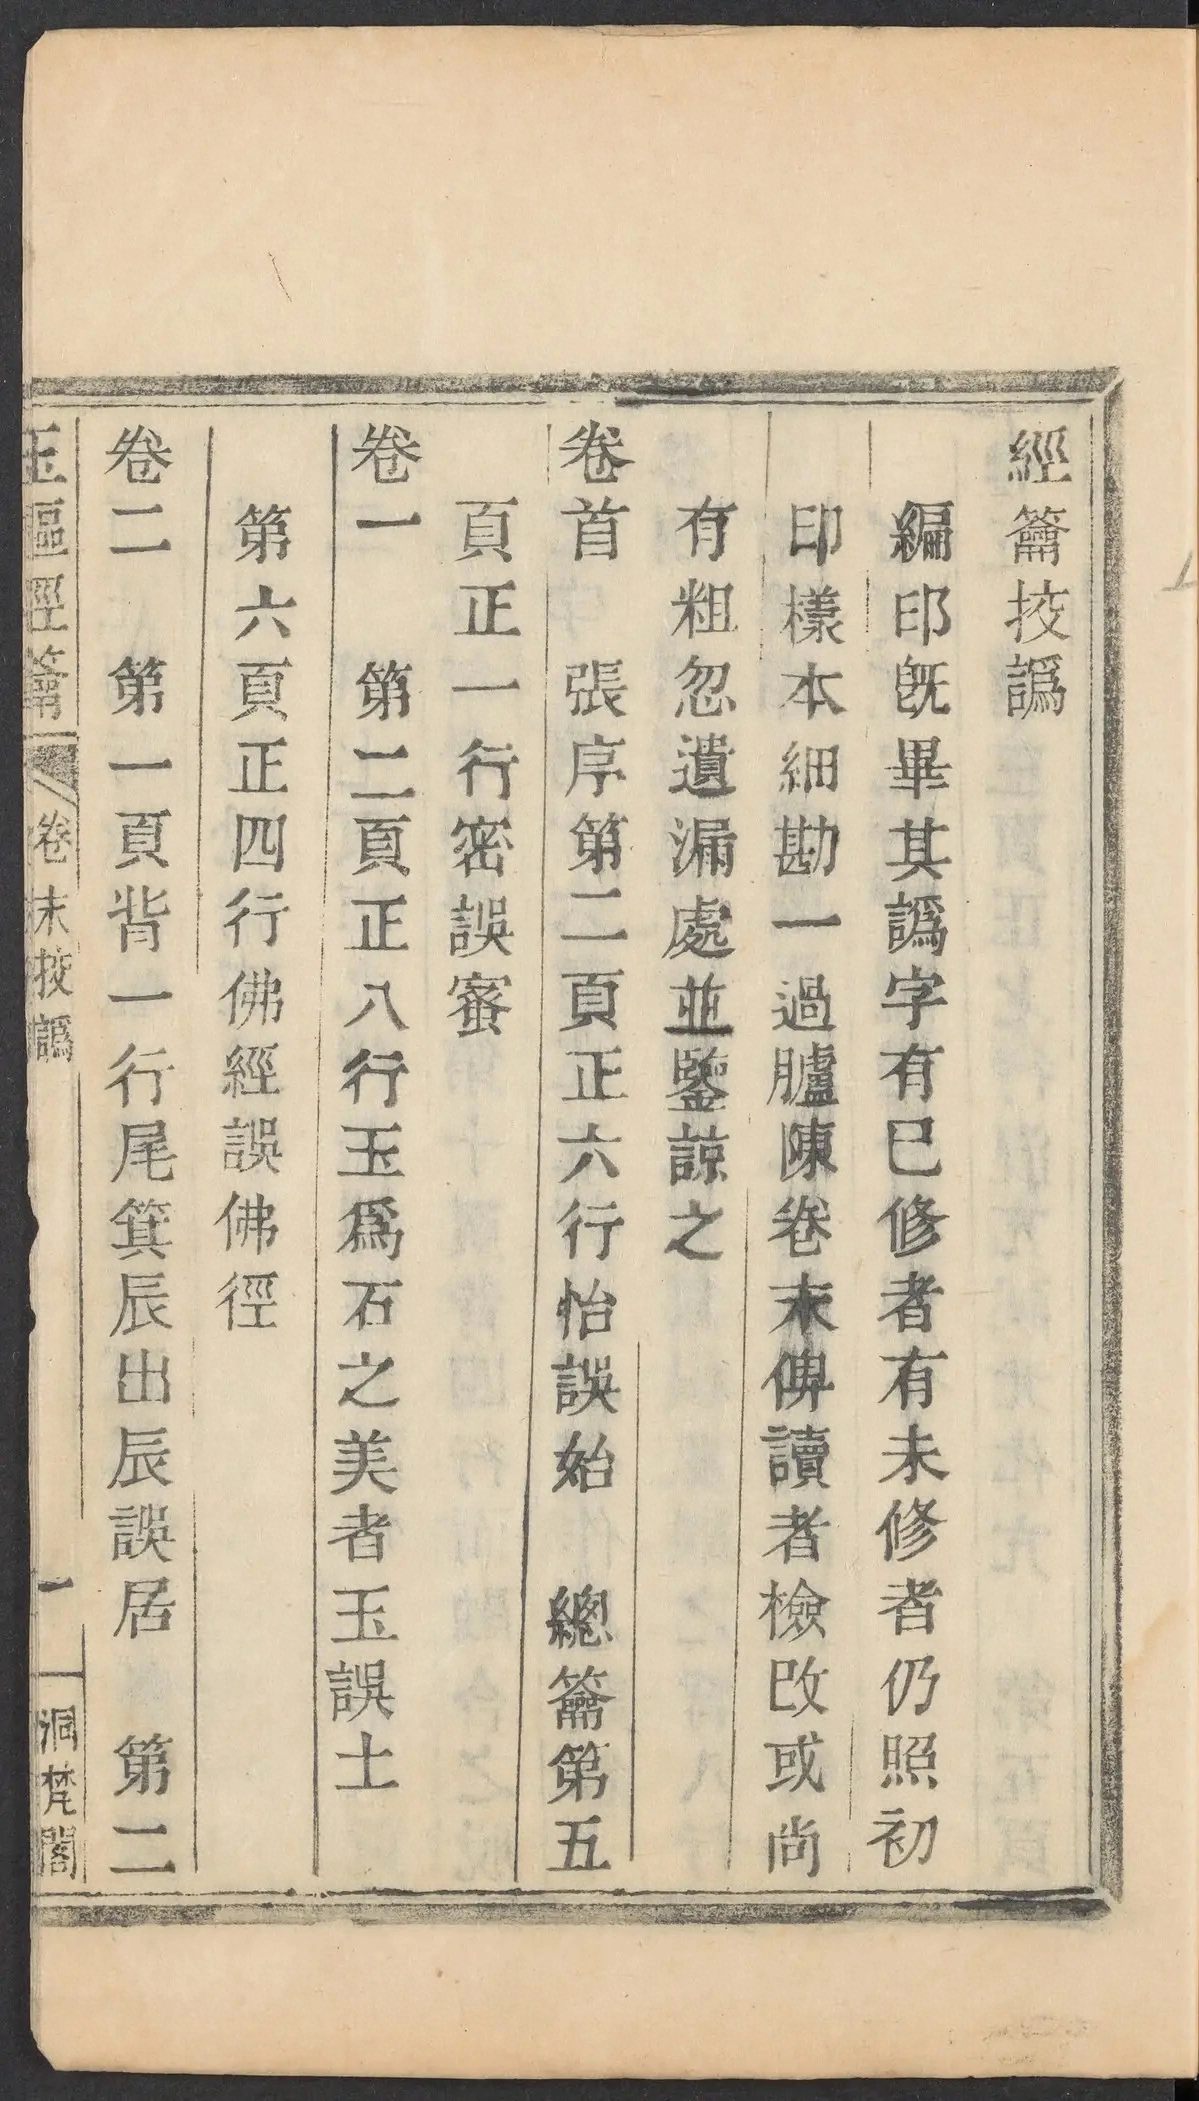 經籥挍譌
編印旣畢其譌字有已修者有未修者仍照初
印樣本細勘一過臚陳卷末俾讀者檢改或尚
有粗忽遺漏處並鑒諒之
卷首 張序第二頁正六行怡誤始 總籥第五
頁正一行密誤蜜
卷一 第二頁正八行玉爲石之美者玉誤士
第六頁正四行佛經誤佛徑
卷二 第一頁背一行尾箕辰出辰誤居 第二
玉樞經籥 卷末挍譌 一 洞梵閣